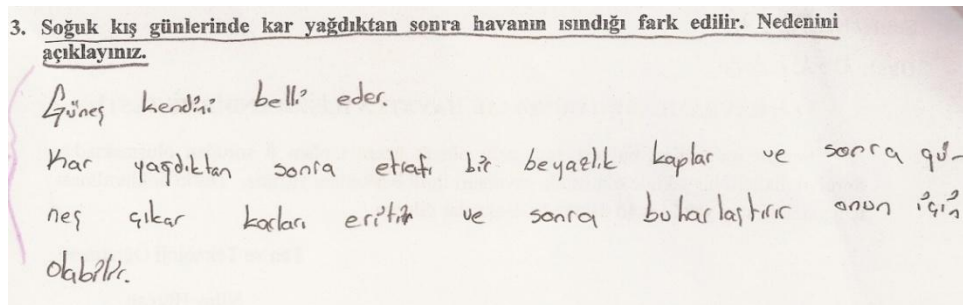 3. Soğuk kış günlerinde kar yağdıktan sonra havanın ısındığı fark edilir. Nedenini
açıklayınız.
Güneş kendini belli eder.
Kar yağdıktan sonra etrafı bir beyazlık kaplar ve sonra gü-
neş çıkar karları eritir ve sonra buharlaştırır onun için
olabilir.